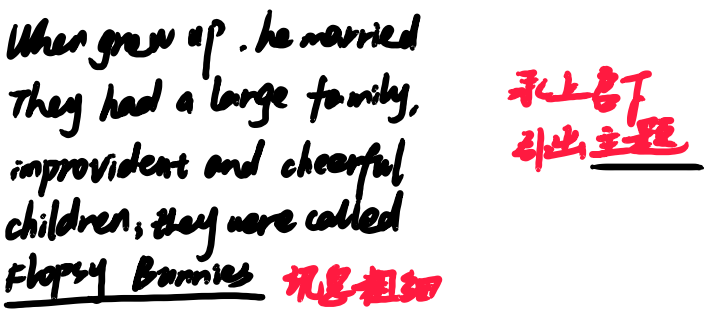 When grew up. he married
They had a large family,
improvident and cheerful
children, they were called
Flopsy Bunnies
承上启下
引出主题
讯息粗细